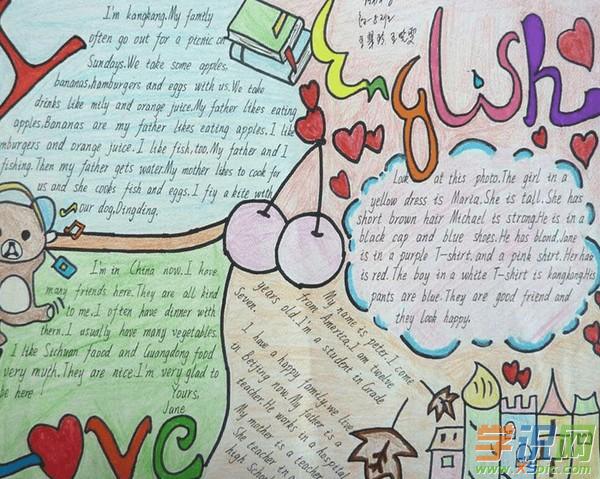 I'm kangkang.My family
often go out for a picnic on
Sundays.We take some apples,
bananas,hamburgers and eggs with us.We take
drinks like mily and orange juice.My father likes eating
apples.Bananas are my father likes eating apples.I like
mburgers and orange juice. I like fish,too.My father and I
fishing.Then my father gets water.My mother likes to cook for
us and she cooks fish and eggs. I fiy a kite with
our dog,Dingding.
English
Look at this photo.The girl in a
yellow dress is Maria.She is tall.She has
short brown hair Michael is strong.He is in a
black cap and blue shoes.He has blond.Jane
is in a purple T-shirt.and a pink shirt.Her hair
is red. The boy in a white T-shirt is kangkong.His
pants are blue.They are good friend and
they look happy.
I'm in China now.I have
many friends here.They are all kind
to me.I often have dinner with
them.I usually have many vegetables.
I like Sichuan faood and Guangdong food
very myth.They are nice.I'm very glad to
be here !
Yours,
Jane
My name is peter.I come
from America.I am twelve
years old.I'm a student in Grade
Seven.
I have a happy family.we live
in Beijing now. My father is a
teacher.He works in a hospital
My mother is a teacher
She teacher in a
high Schoo
OVC
学识网
www.xspic.com